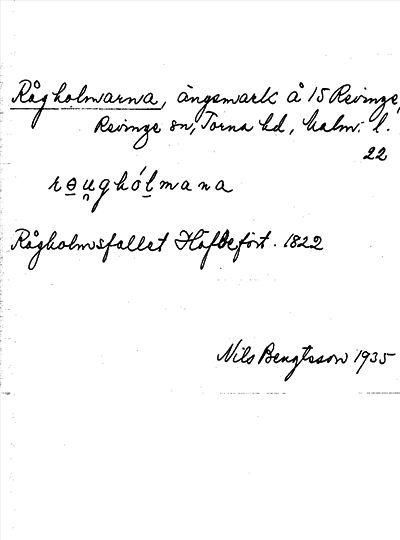 Rågholmarna, ängsmark å 15 Revinge,
Revinge sn, Torna hd, Malm. l.
22
rəu̯ghólmana
Rågholmsfallet Hafbefört. 1822
Nils Bengtsson 1935